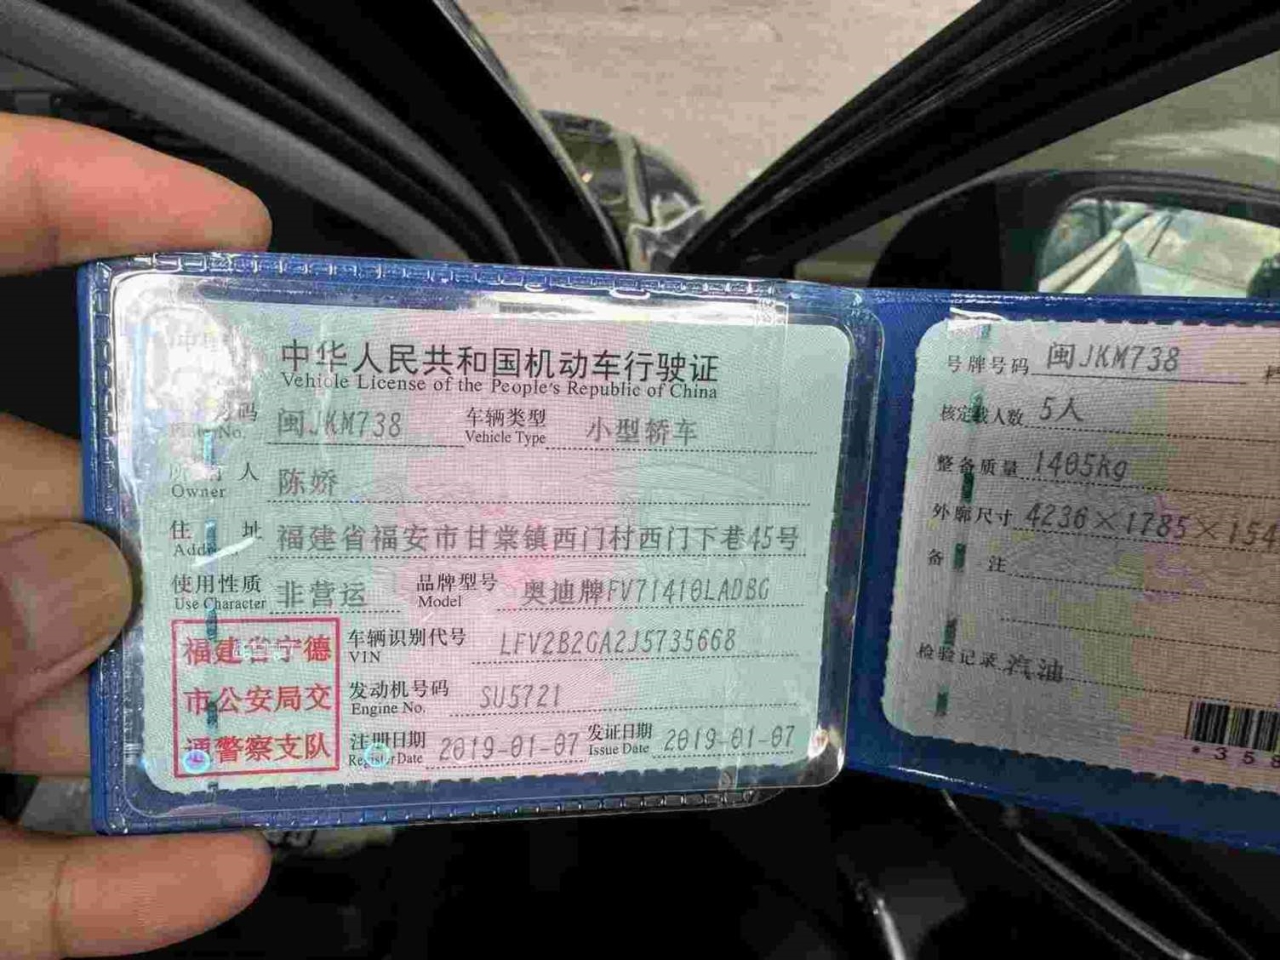 中华人民共和国机动车行驶证
Vehicle License of the People's Republic of China
号码 闽JKM738 车辆类型 小型轿车
Plate No. Vehicle Type
人 陈娇
Owner
住 址 福建省福安市甘棠镇西门村西门下巷45号
使用性质 非营运 品牌型号 奥迪牌FV71410LADBG
Use Character Model
福建省宁德
市公安局交
通警察支队
车辆识别代号 LFV2B2GA2J5735668
VIN
发动机号码 SU5721
Engine No.
注册日期 2019-01-07 发证日期 2019-01-07
Register Date Issue Date
号牌号码 闽JKM738
核定载人数 5人
整备质量 1405kg
外廓尺寸 4236×1785×154
备 注
检验记录 汽油
*358